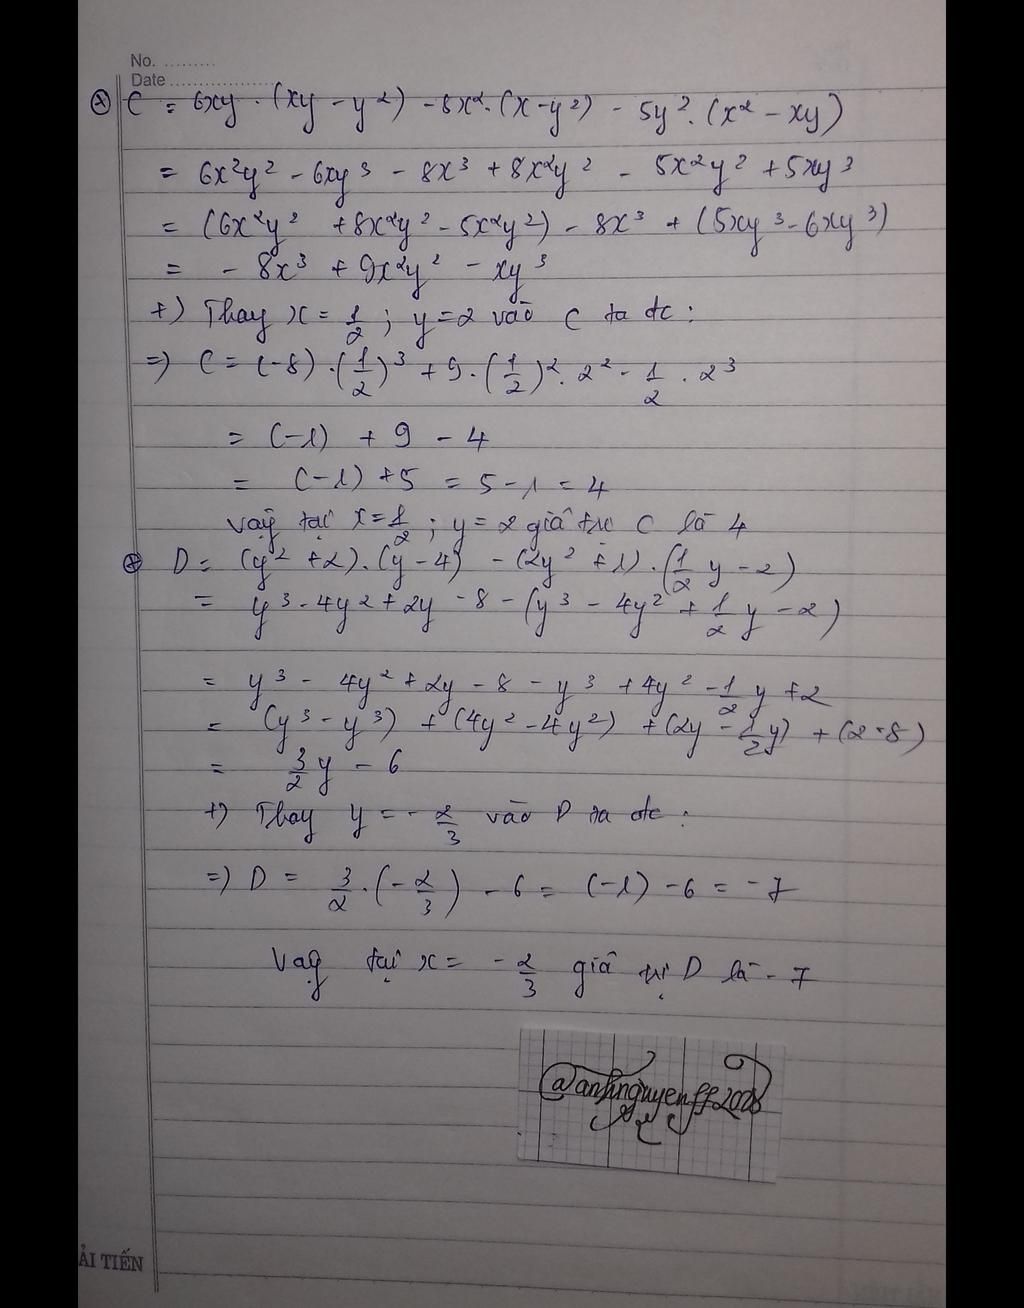 No. .........
Date ..................
⊛ C = 6xy . (xy - y²) - 8x² . (x - y²) - 5y² . (x² - xy)
= 6x²y² - 6xy³ - 8x³ + 8x²y² - 5x²y² + 5xy³
= (6x²y² + 8x²y² - 5x²y²) - 8x³ + (5xy³ - 6xy³)
= - 8x³ + 9x²y² - xy³
+) Thay x = 1/2 ; y = 2 vào C ta đc :
=) C = (-8) . (1/2)³ + 9 . (1/2)² . 2² - 1/2 . 2³
= (-1) + 9 - 4
= (-1) + 5 = 5 - 1 = 4
Vậy tại x = 1/2 ; y = 2 giá trị C là 4
⊛ D = (y² + 2) . (y - 4) - (2y² + 1) . (1/2 y - 2)
= y³ - 4y² + 2y - 8 - (y³ - 4y² + 1/2 y - 2)
= y³ - 4y² + 2y - 8 - y³ + 4y² - 1/2 y + 2
= (y³ - y³) + (4y² - 4y²) + (2y - 1/2 y) + (2 - 8)
= 3/2 y - 6
+) Thay y = - 2/3 vào D ta đc :
=) D = 3/2 . (- 2/3) - 6 = (-1) - 6 = - 7
Vậy tại x = - 2/3 giá trị D là - 7
@anhnguyenff2008
ẢI TIẾN